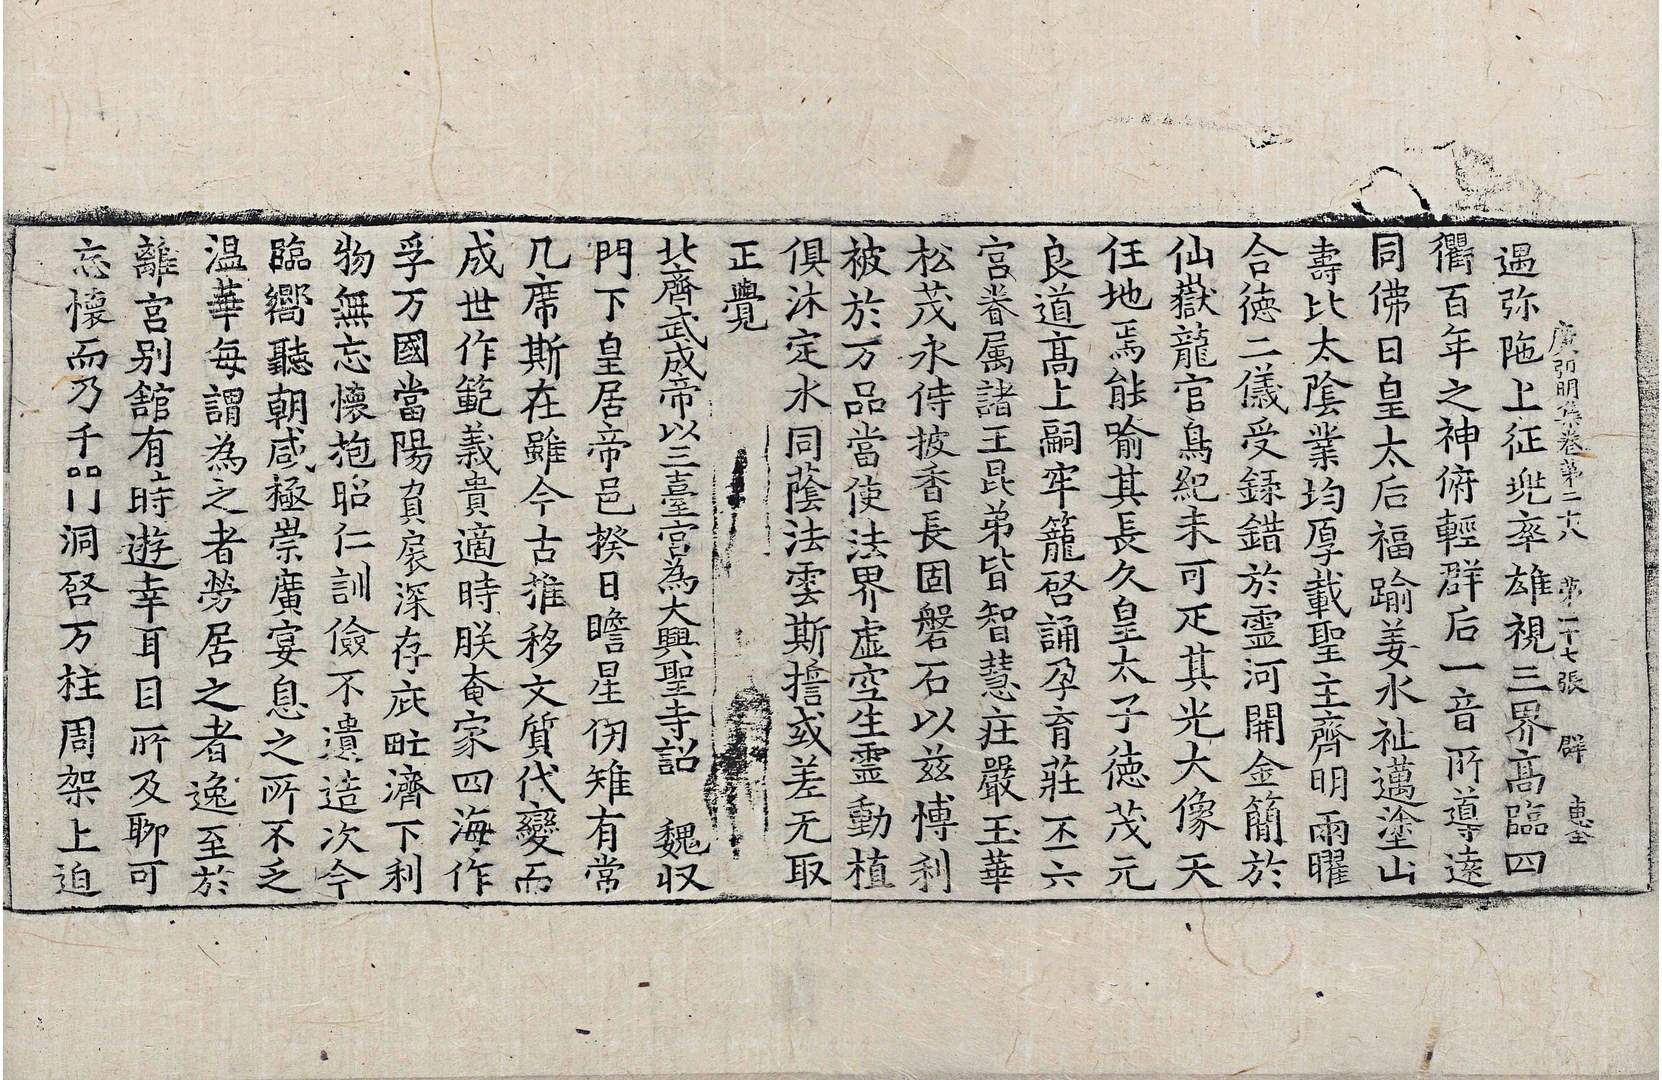 廣弘明集卷第二十八 第二十七張 群 惠全
遇弥陁上征兠率雄視三界髙臨四
衢百年之神俯輕群后一音所導遠
同佛日皇太后福踰姜水祉邁塗山
壽比太陰業均厚載聖主齊明兩曜
合徳二儀受録錯於靈河開金簡於
仙嶽龍官鳥紀未可疋其光大像天
任地焉能喻其長久皇太子徳茂元
良道髙上嗣牢籠啓誦孕育莊丕六
宮眷属諸王昆弟皆智慧庄嚴玉華
松茂永侍披香長固磐石以兹博利
被於万品當使法界虛空生靈動植
俱沐定水同蔭法雲斯擔或差无取
正覺
北齊武成帝以三臺宮為大興聖寺詔 魏収
門下皇居帝邑揆日瞻星仞雉有常
几席斯在雖今古推移文質代變而
成世作範義貴適時朕奄家四海作
孚万國當陽負扆深存庇甿濟下利
物無忘懐抱昭仁訓儉不遺造次今
臨嚮聽朝咸極崇廣宴息之所不乏
温華每謂為之者勞居之者逸至於
離宮别舘有時遊幸耳目所及聊可
忘懐而乃千門洞啓万柱周架上迫